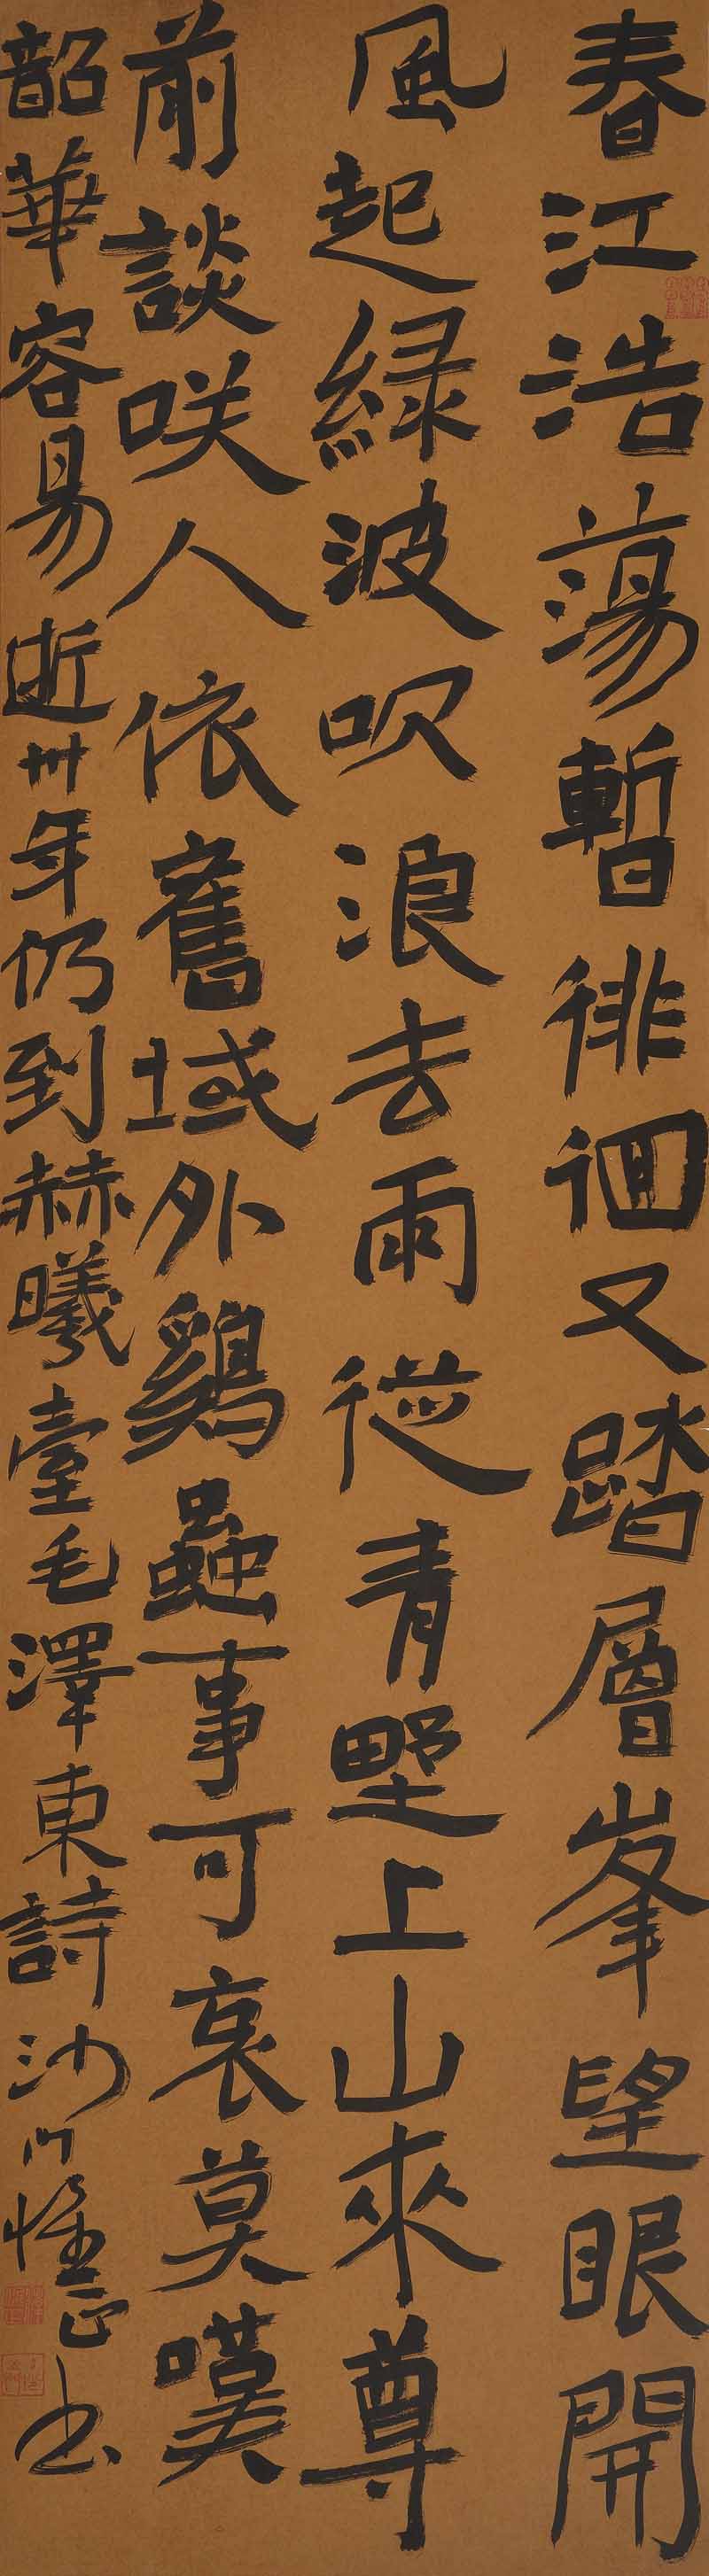 春江浩蕩暫徘徊又踏層峯望眼開
風起緑波吹浪去雨從青埜上山來尊
前談咲人依舊域外鷄蟲事可哀莫嘆
韶華容易逝卅年仍到赫曦臺毛澤東詩沙門惟正书